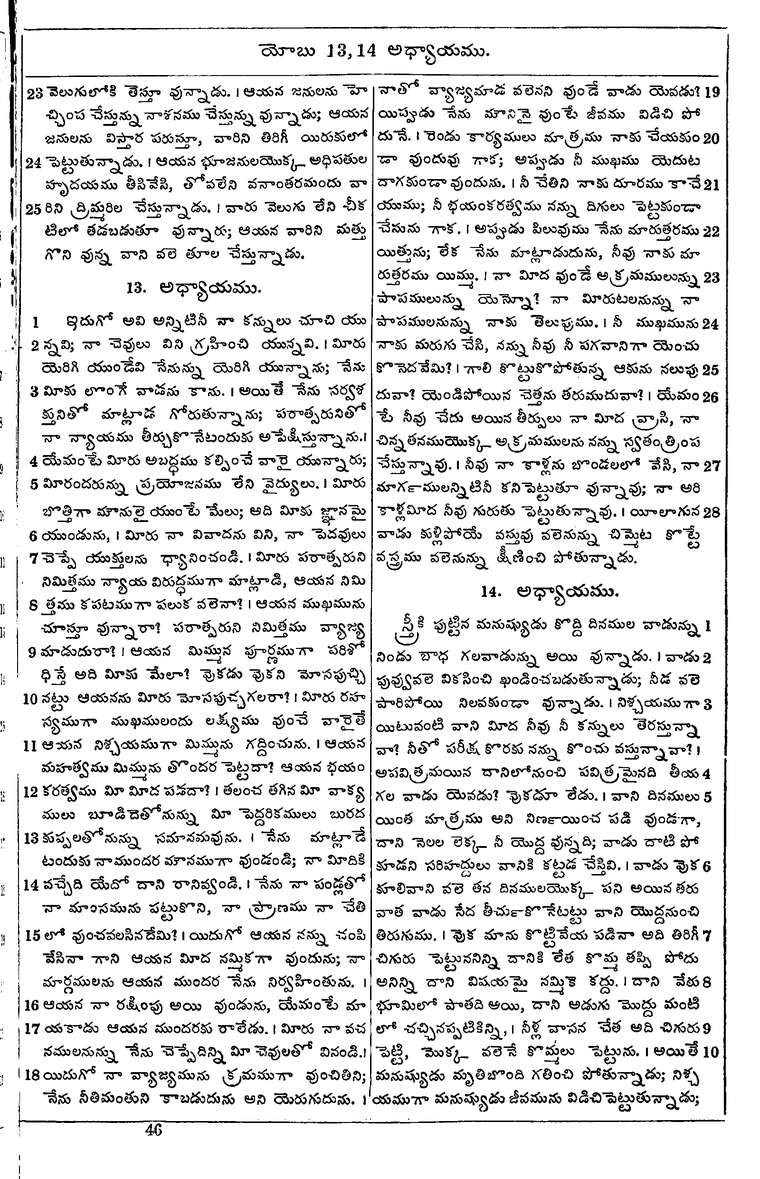 యోబు 13, 14 అధ్యాయము.
23 వెలుగులోకి తెస్తూ వున్నాడు. । ఆయన జనులను హె
చ్చింప చేస్తున్ను నాశనము చేస్తున్ను వున్నాడు; ఆయన
జనులను విస్తార పరుస్తూ, వారిని తిరిగీ యిరుకులో
24 పెట్టుతున్నాడు. । ఆయన భూజనులయొక్క అధిపతుల
హృదయము తీసివేసి, తోవలేని వనాంతరమందు వా
25 రిని ద్రిమ్మరిల చేస్తున్నాడు. । వారు వెలుగు లేని చీక
టిలో తడబడుతూ వున్నారు; ఆయన వారిని మత్తు
గొని వున్న వాని వలె తూల చేస్తున్నాడు.
13. అధ్యాయము.
1 ఇదుగో అవి అన్నిటినీ నా కన్నులు చూచి యు
2 న్నవి; నా చెవులు విని గ్రహించి యున్నవి. । మీరు
యెరిగి యుండేవి నేనున్ను యెరిగి యున్నాను; నేను
3 మీకు లొంగే వాడను కాను. । అయితే నేను సర్వశ
క్తునితో మాట్లాడ గోరుతున్నాను; పరాత్పరునితో
నా న్యాయము తీర్చుకొనేటందుకు అపేక్షిస్తున్నాను.।
4 యేమంటే మీరు అబద్ధము కల్పించే వారై యున్నారు;
5 మీరందరున్ను ప్రయోజనము లేని వైద్యులు. । మీరు
బొత్తిగా మౌనులై యుంటే మేలు; అది మీకు జ్ఞానమై
6 యుండును, । మీరు నా వివాదను విని, నా పెదవులు
7 చెప్పే యుక్తులను ధ్యానించండి. । మీరు పరాత్పరుని
నిమిత్తము న్యాయ విరుద్ధముగా మాట్లాడి, ఆయన నిమి
8 త్తము కపటముగా పలుక వలెనా? । ఆయన ముఖమును
చూస్తూ వున్నారా? పరాత్పరుని నిమిత్తము వ్యాజ్య
9 మాడుదురా? । ఆయన మిమ్మున పూర్ణముగా పరిశో
ధిస్తే అది మీకు మేలా? వొకడు వొకని మోసపుచ్చి
10 నట్టు ఆయనను మీరు మోసపుచ్చగలరా? । మీరు రహ
స్యముగా ముఖములందు లక్ష్యము వుంచే వారైతే
11 ఆయన నిశ్చయముగా మిమ్మును గద్దించును. । ఆయన
మహత్వము మిమ్మును తొందర పెట్టదా? ఆయన భయం
12 కరత్వము మీ మీద పడదా? । తలంచ తగిన మీ వాక్య
ములు బూడిదెతోనున్ను మీ పెద్దరికములు బురద
13 కుప్పలతోనున్ను సమానమవును. । నేను మాట్లాడే
టందుకు నాముందర మౌనముగా వుండండి; నా మీదికి
14 వచ్చేది యేదో దాని రానివ్వండి. । నేను నా పండ్లతో
నా మాంసమును పట్టుకొని, నా ప్రాణము నా చేతి
15 లో వుంచవలసినదేమి? । యిదుగో ఆయన నన్ను చంపి
వేసినా గాని ఆయన మీద నమ్మికగా వుందును; నా
మార్గములను ఆయన ముందర నేను నిర్వహింతును. ।
16 ఆయన నా రక్షింపు అయి వుండును, యేమంటే మా
17 యకాడు ఆయన ముందరకు రాలేడు. । మీరు నా వచ
నములనున్ను నేను చెప్పేదిన్ని మీ చెవులతో వినండి.।
18 యిదుగో నా వ్యాజ్యమును క్రమముగా వుంచితిని;
నేను నీతిమంతుని కాబడుదును అని యెరుగుదును. ।
నాతో వ్యాజ్యమాడ వలెనని వుండే వాడు యెవడు? 19
యిప్పుడు నేను మౌనినై వుంటే జీవము విడిచి పో
దునే. । రెండు కార్యములు మాత్రము నాకు చేయకుం 20
డా వుందువు గాక; అప్పుడు నీ ముఖము యెదుట
దాగకుండా వుందును. । నీ చేతిని నాకు దూరము కాచే 21
యుము; నీ భయంకరత్వము నన్ను దిగులు పెట్టకుండా
చేసును గాక. । అప్పుడు పిలువుము నేను మారుత్తరము 22
యిత్తును; లేక నేను మాట్లాడుదును, నీవు నాకు మా
రుత్తరము యిమ్ము. । నా మీద వుండే అక్రమములున్ను 23
పాపములున్ను యెన్నో? నా మీరుటలనున్ను నా
పాపములనున్ను నాకు తెలుపుము. । నీ ముఖమును 24
నాకు మరుగు చేసి, నన్ను నీవు నీ పగవానిగా యెంచు
కొనెదవేమి? । గాలి కొట్టుకొపోతున్న ఆకును నలుపు 25
దువా? యెండిపోయిన చెత్తను తరుముదువా? । యేమం 26
టే నీవు చేదు అయిన తీర్పులు నా మీద వ్రాసి, నా
చిన్నతనముయొక్క అక్రమములను నన్ను స్వతంత్రింప
చేస్తున్నావు. । నీవు నా కాళ్లను బొండలలో వేసి, నా 27
మార్గములన్నిటినీ కనిపెట్టుతూ వున్నావు; నా అరి
కాళ్లమీద నీవు గురుతు పెట్టుతున్నావు. । యీలాగున 28
వాడు కుళ్లిపోయే వస్తువు వలెనున్ను చిమ్మెట కొట్టే
వస్త్రము వలెనున్ను క్షీణించి పోతున్నాడు.
14. అధ్యాయము.
స్త్రీకి పుట్టిన మనుష్యుడు కొద్ది దినముల వాడున్ను 1
నిండు బాధ గలవాడున్ను అయి వున్నాడు. । వాడు 2
పువ్వువలె వికసించి ఖండించబడుతున్నాడు; నీడ వలె
పారిపోయి నిలవకుండా వున్నాడు. । నిశ్చయముగా 3
యిటువంటి వాని మీద నీవు నీ కన్నులు తెరస్తున్నా
వా? నీతో పరీక్ష కొరకు నన్ను కొంచు వస్తున్నావా?।
అపవిత్రమయిన దానిలోనుంచి పవిత్రమైనది తీయ 4
గల వాడు యెవడు? వొకడూ లేడు. । వాని దినములు 5
యింత మాత్రము అని నిర్ణయించ పడి వుండగా,
దాని నెలల లెక్క నీ యొద్ద వున్నది; వాడు దాటి పో
కూడని సరిహద్దులు వానికి కట్టడ చేస్తివి. । వాడు వొక 6
కూలివాని వలె తన దినములయొక్క పని అయిన తరు
వాత వాడు సేద తీర్చుకొనేటట్టు వాని యొద్దనుంచి
తిరుగుము. । వొక మాను కొట్టివేయ పడినా అది తిరిగీ 7
చిగురు పెట్టుననిన్ని దానికి లేత కొమ్మ తప్పి పోదు
అనిన్ని దాని విషయమై నమ్మికె కద్దు. । దాని వేరు 8
భూమిలో పాతది అయి, దాని అడుగు మొద్దు మంటి
లో చచ్చినప్పటికిన్ని, । నీళ్ల వాసన చేత అది చిగురు 9
పెట్టి, మొక్క వలెనే కొమ్మలు పెట్టును. । అయితే 10
మనుష్యుడు మృతిబొంది గతించి పోతున్నాడు; నిశ్చ
యముగా మనుష్యుడు జీవమును విడిచిపెట్టుతున్నాడు;
46